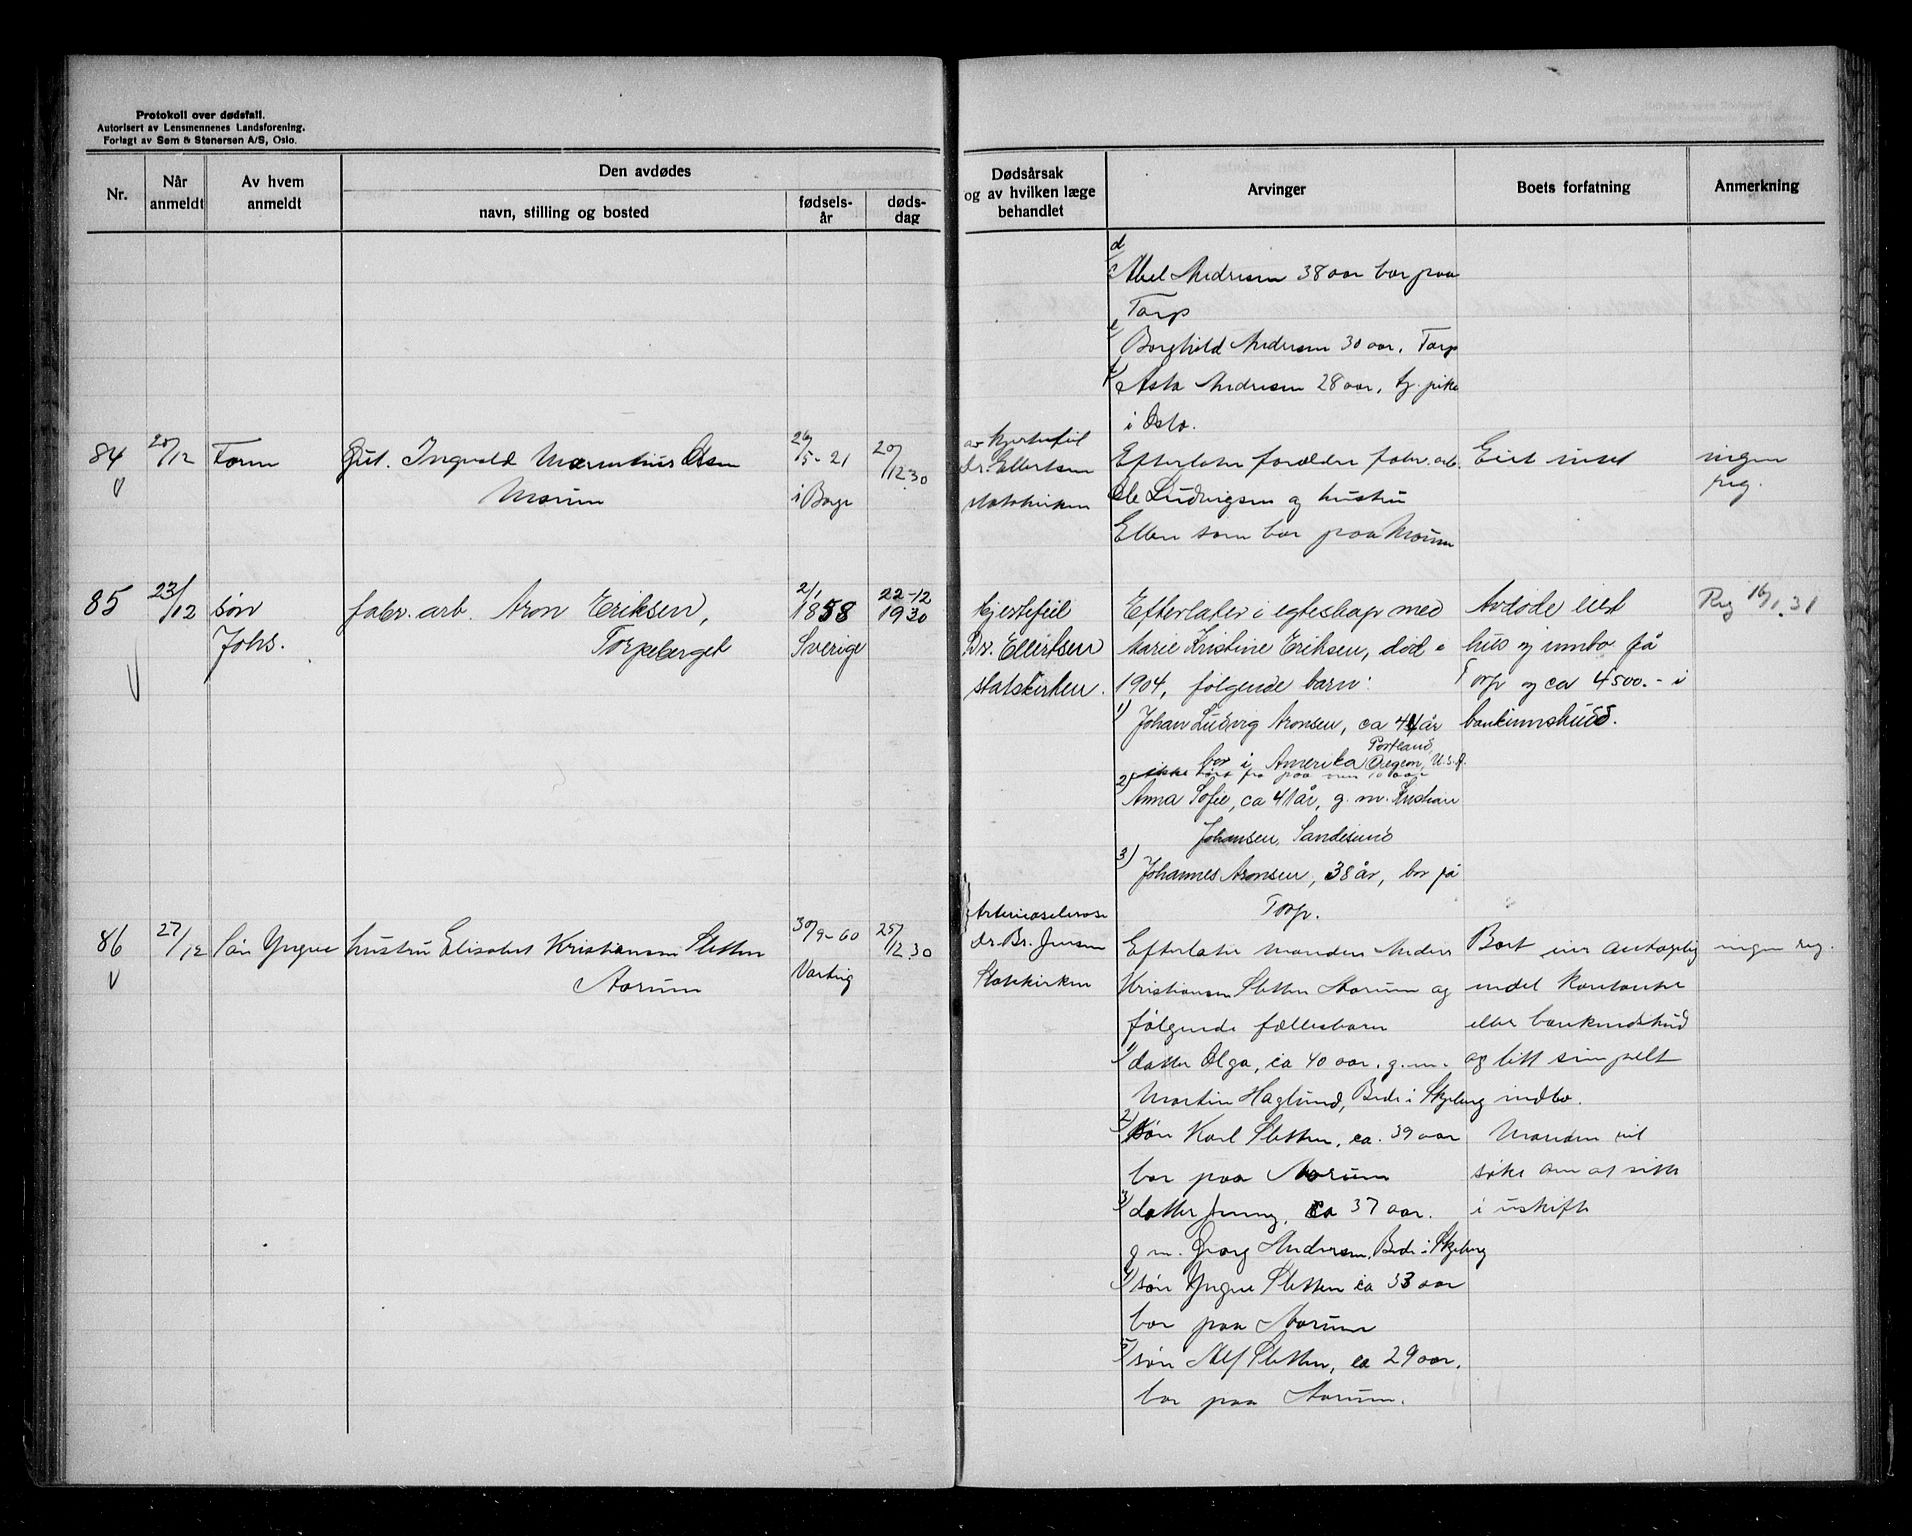 Protokoll over dødsfall.
Autorisert av Lensmennenes Landsforening.
Forlagt av Sem & Stenersen A/S, Oslo.
Nr.
Når anmeldt
Av hvem anmeldt
Den avdødes
navn, stilling og bosted
fødsels-år
døds-dag
Dødsårsak
og av hvilken læge
behandlet
Arvinger
Boets forfatning
Anmerkning
d
Abel Andresen 38 aar bor paa
Torp
e
Borghild Andersen 30 aar, Torp
f
Asta Andresen 28 aar, tj. pike
i Oslo.
84
20/12
Gut. Ingvald Olsen
Moum
26/5-21
i Borge
20/12.30
av hjertefeil
dr. Ellertsen
statskirken
Efterlater forældre fabr. arb.
Ole Ludvigsen og hustru
Ellen som bor paa Moum
Eiet intet
ingen
reg.
85
23/12
søn
Johs.
fabr. arb. Aron Eriksen,
Torpeberget
2/1
1858
Sverige
22-12
1930
hjertefeil
Dr. Ellertsen
statskirken.
Efterlater i egteskap med
Marie Kristine Eriksen, død i
1904, følgende barn:
1) Johan Ludvig Aronsen, ca 44 år
Portland,
bor i Amerika Oregon, U.S.A.
ikke hørt fra paa over 10 aar
2) Anna Sofie, ca 41 år, g. m. Kristian
Johansen, Sandesund
3) Johannes Aronsen, 38 år, bor på
Torp.
Avdøde eiet
hus og innbo på
Torp og ca 4500.- i
bankinnskudd.
Reg 16/1.31
86
27/12
Søn Yngve
hustru Elisabet Kristiansen Sletten
Aarum
30/9-60
Varteig
25/12.30
Arterioselerose
dr. Br. Jensen
Statskirken
Efterlater manden Anders
Kristiansen Sletten Aarum og
følgende fællesbarn
1) datter Olga, ca 40 aar. g.m.
Martin Haglund, Bede i Skjeberg
2) søn Karl Sletten, ca. 39 aar
bor paa Aarum
3) datter Jenny, ca 37 aar.
g m. Georg Andersen, Bede i Skjeberg
4) søn Yngve Sletten ca 33 aar
bor paa Aarum
5) søn Alf Sletten, ca 29 aar.
bor paa Aarum.
Boet eier antagelig
endel kontanter
eller bankindskud
og litt simpelt
indbo.
Manden vil
søke om at sitte
i uskifte
ingen reg.